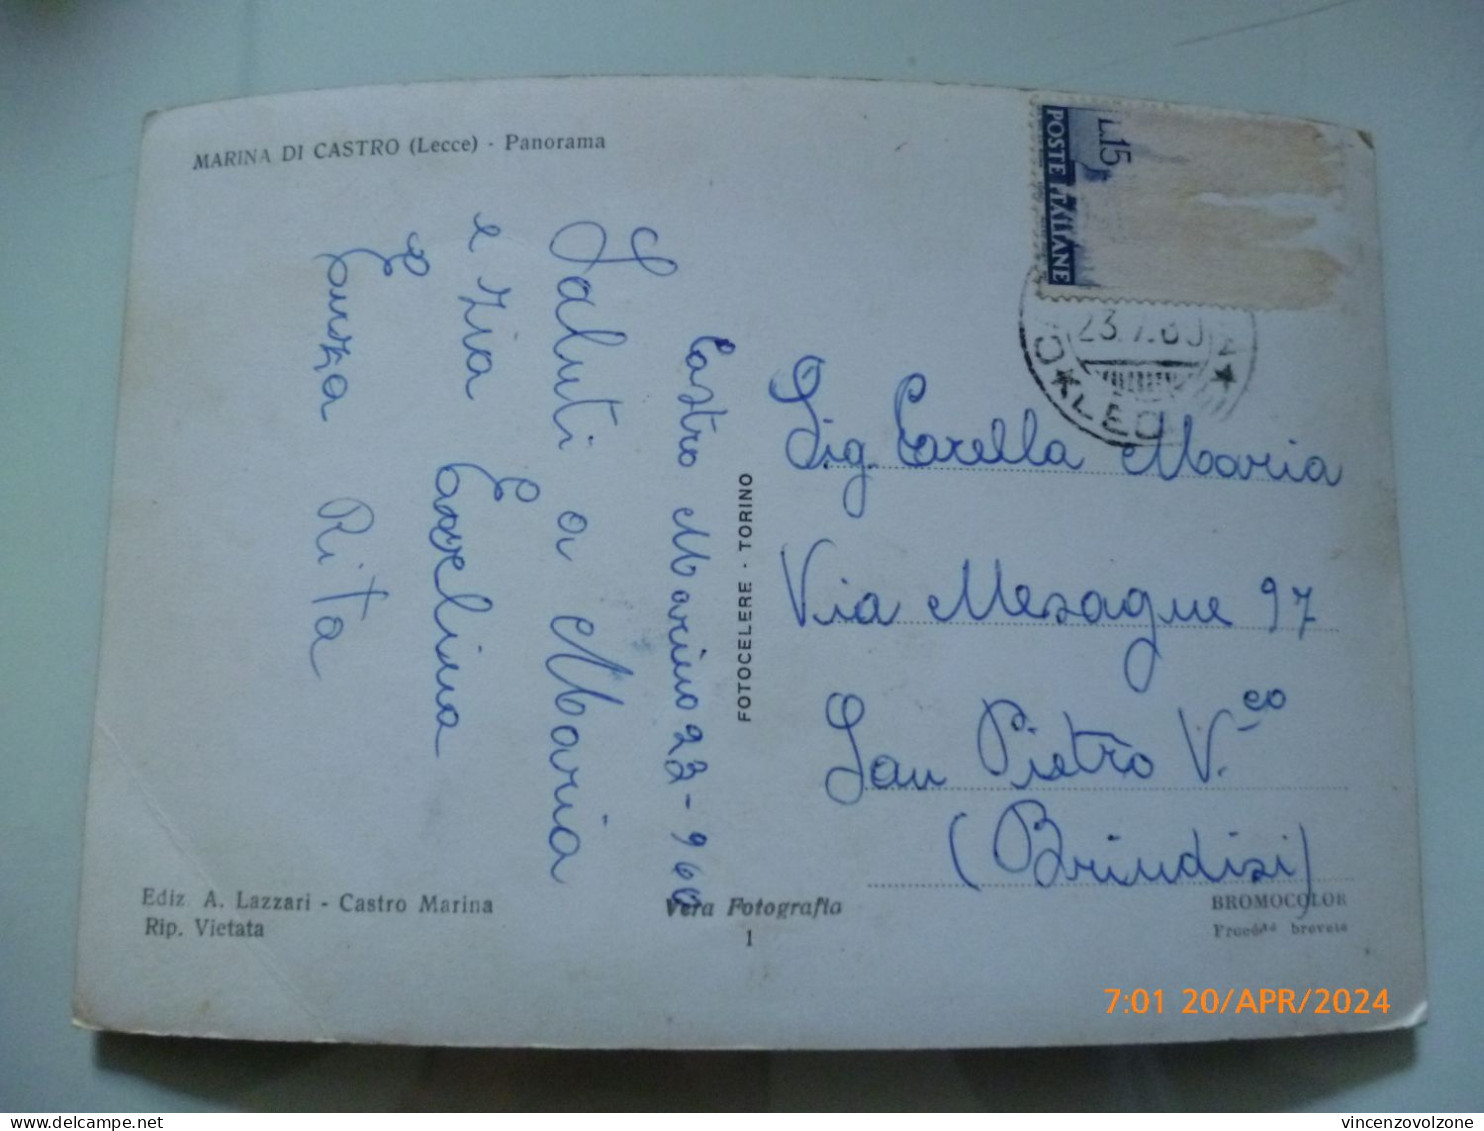 MARINA DI CASTRO (Lecce) - Panorama
Castro Marina 23-960
Saluti a Maria
e zia Eugenia
Enza Rita
L.15
POSTE ITALIANE
23.7.60
LEC
Sig. Carella Maria
Via Mesagne 97
San Pietro V.co
(Brindisi)
FOTOCELERE - TORINO
Ediz A. Lazzari - Castro Marina
Rip. Vietata
Vera Fotografia
1
BROMOCOLOR
Procédé breveté
7:01 20/APR/2024
www.delcampe.net
vincenzovolzone